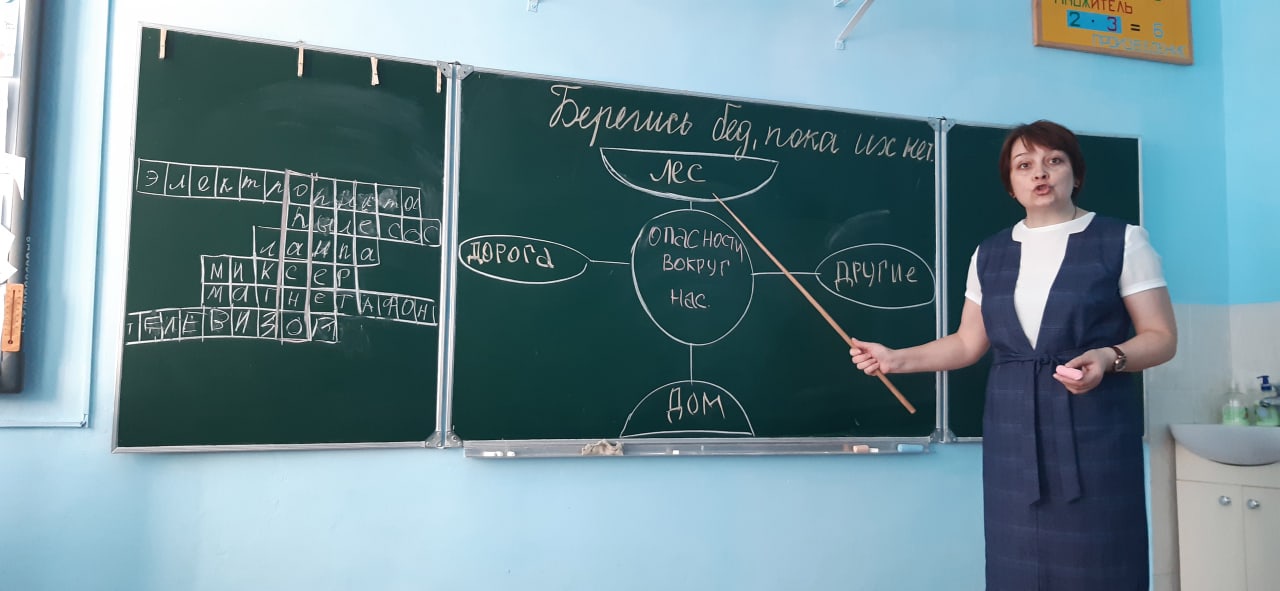 Электроплита
пылесос
лампа
миксер
магнетафон
телевизор
Берегись бед, пока их нет.
лес
опасности
вокруг
нас
дорога
другие
дом
множитель
2 · 3 = 6